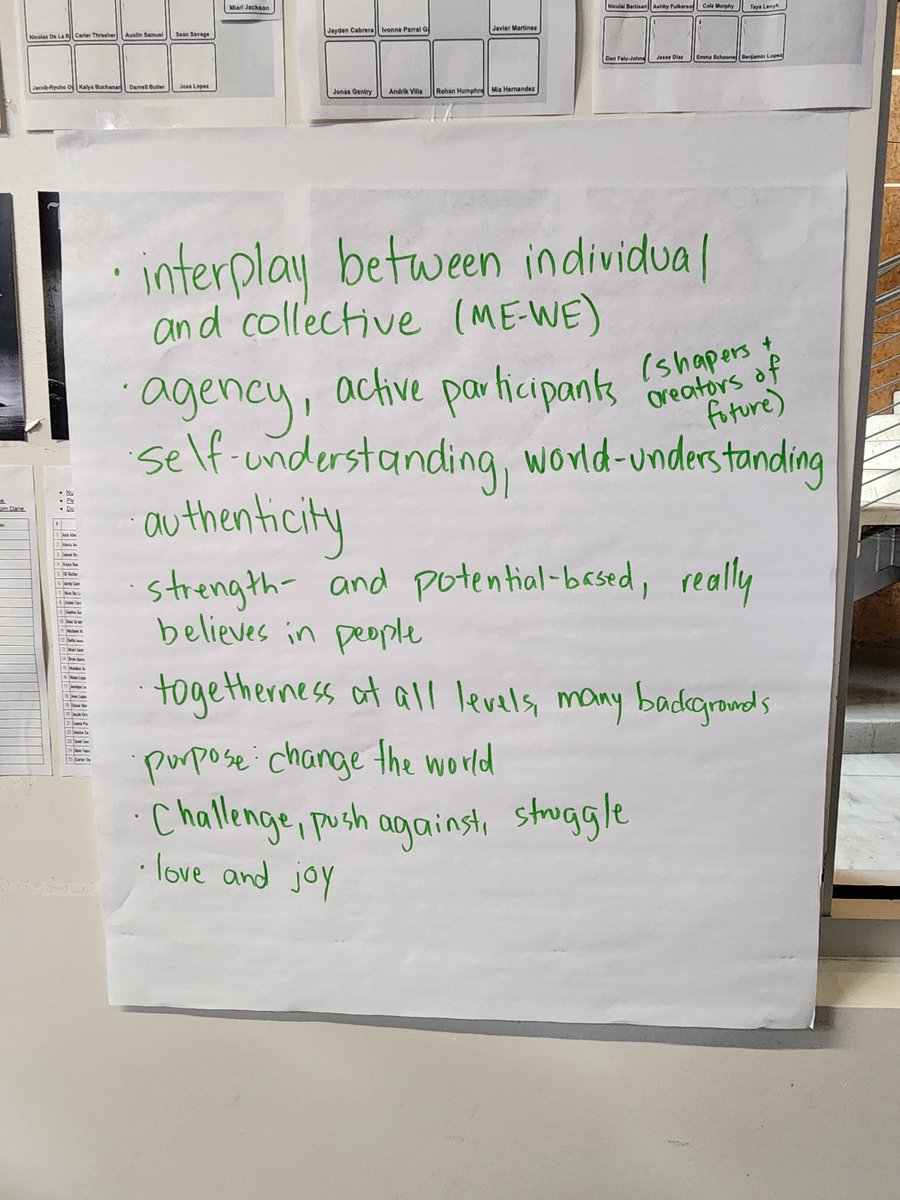 Miari Jackson
Nicolas De La R Carter Thrasher Austin Samuel Sean Savage
Jacob-Ryuho Kaiya Buchanan Darnell Butler Jose Lopez
Jayden Cabrera Ivonne Parral G Javier Martinez
Jonas Gentry Andrik Villa Rohan Humphre Mia Hernandez
Ashby Cole Murphy Taya
Jesse Diaz Emma Schoone Benjamin Lopez
· interplay between individual
and collective (ME-WE)
· agency, active participants (shapers +
creators of
future)
· self-understanding, world-understanding
· authenticity
· strength- and potential-based, really
believes in people
· togetherness at all levels, many backgrounds
· purpose: change the world
· Challenge, push against, struggle
· love and joy